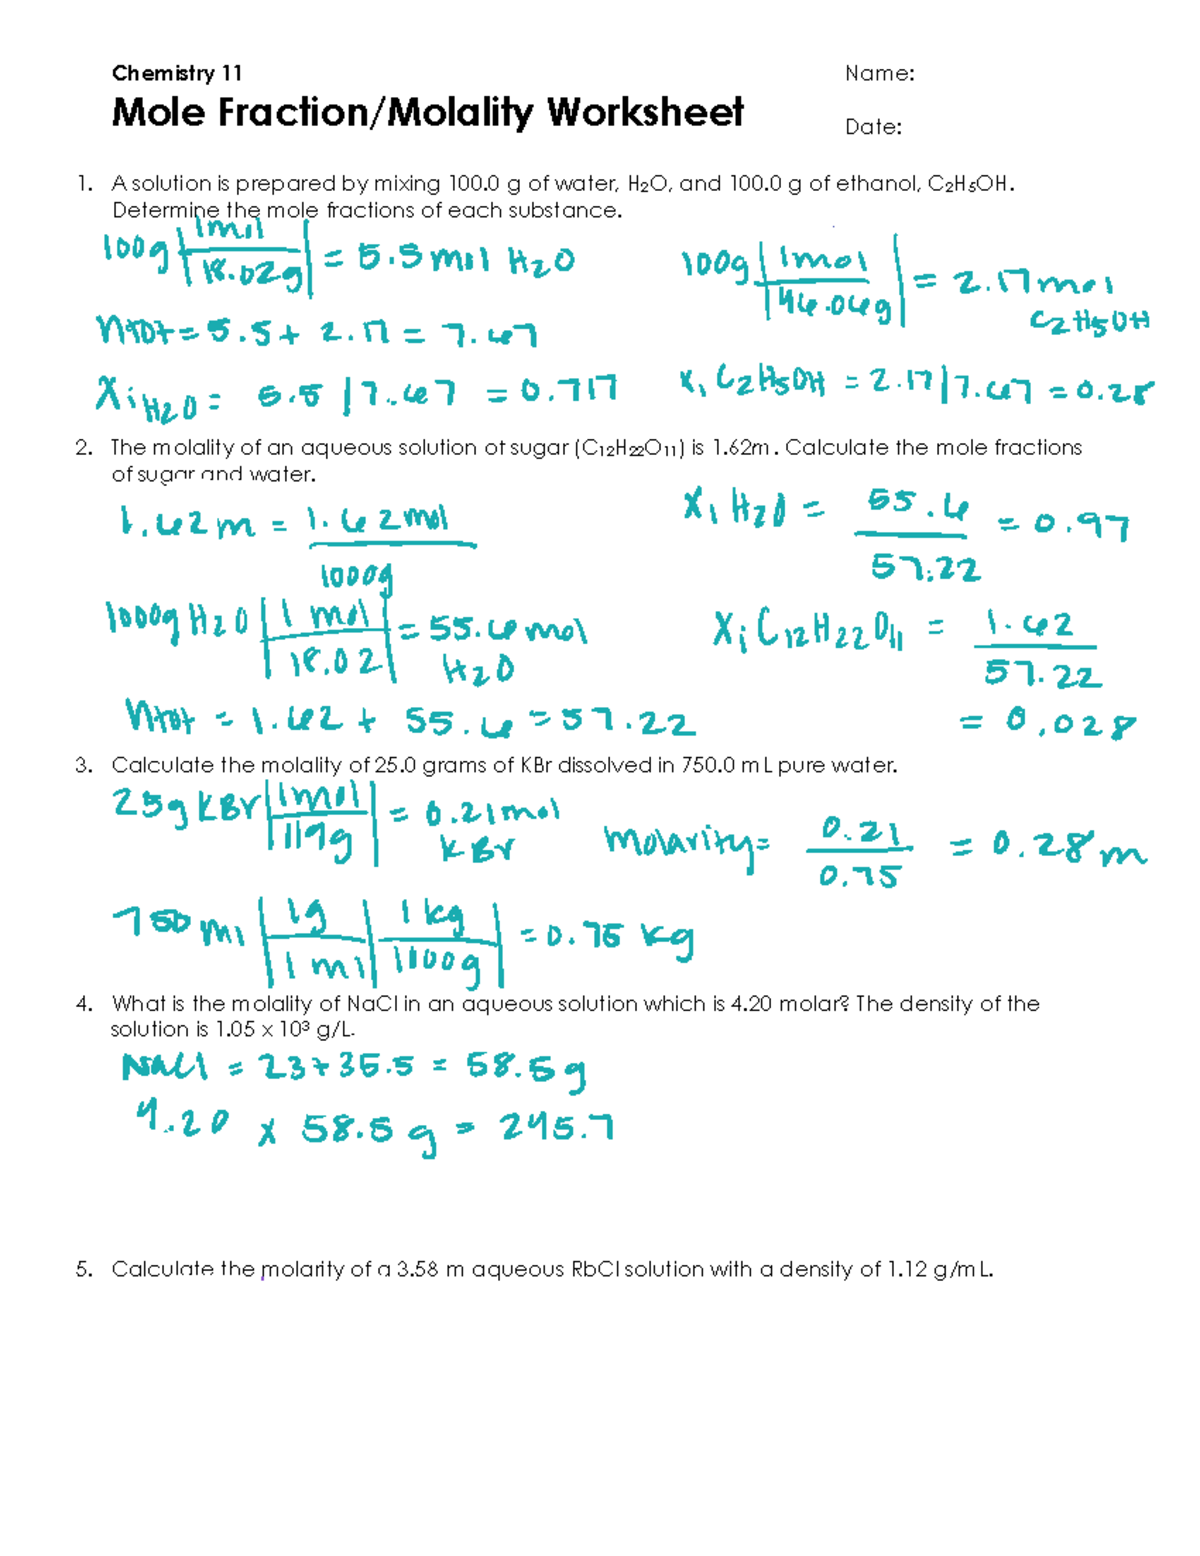 Chemistry 11
Name:
Mole Fraction/Molality Worksheet
Date:
1. A solution is prepared by mixing 100.0 g of water, H₂O, and 100.0 g of ethanol, C₂H₅OH.
Determine the mole fractions of each substance.
100g | 1mol / 18.02g | = 5.5 mol H2O
100g | 1mol / 46.06g | = 2.17 mol C2H5OH
ntot = 5.5 + 2.17 = 7.67
Xi H2O = 5.5 / 7.67 = 0.717
Xi C2H5OH = 2.17 / 7.67 = 0.28
2. The molality of an aqueous solution of sugar (C₁₂H₂₂O₁₁) is 1.62m. Calculate the mole fractions
of sugar and water.
1.62m = 1.62mol / 1000g
Xi H2O = 55.6 / 57.22 = 0.97
1000g H2O | 1 mol / 18.02 | = 55.6 mol H2O
Xi C12H22O11 = 1.62 / 57.22 = 0.028
ntot = 1.62 + 55.6 = 57.22
3. Calculate the molality of 25.0 grams of KBr dissolved in 750.0 mL pure water.
25g KBr | 1mol / 119g | = 0.21mol KBr
Molarity = 0.21 / 0.75 = 0.28 m
750 ml | 1g / 1 ml | 1 kg / 1000g | = 0.75 kg
4. What is the molality of NaCl in an aqueous solution which is 4.20 molar? The density of the
solution is 1.05 x 10³ g/L.
NaCl = 23+35.5 = 58.5g
4.20 x 58.5g = 245.7
5. Calculate the molarity of a 3.58 m aqueous RbCl solution with a density of 1.12 g/mL.